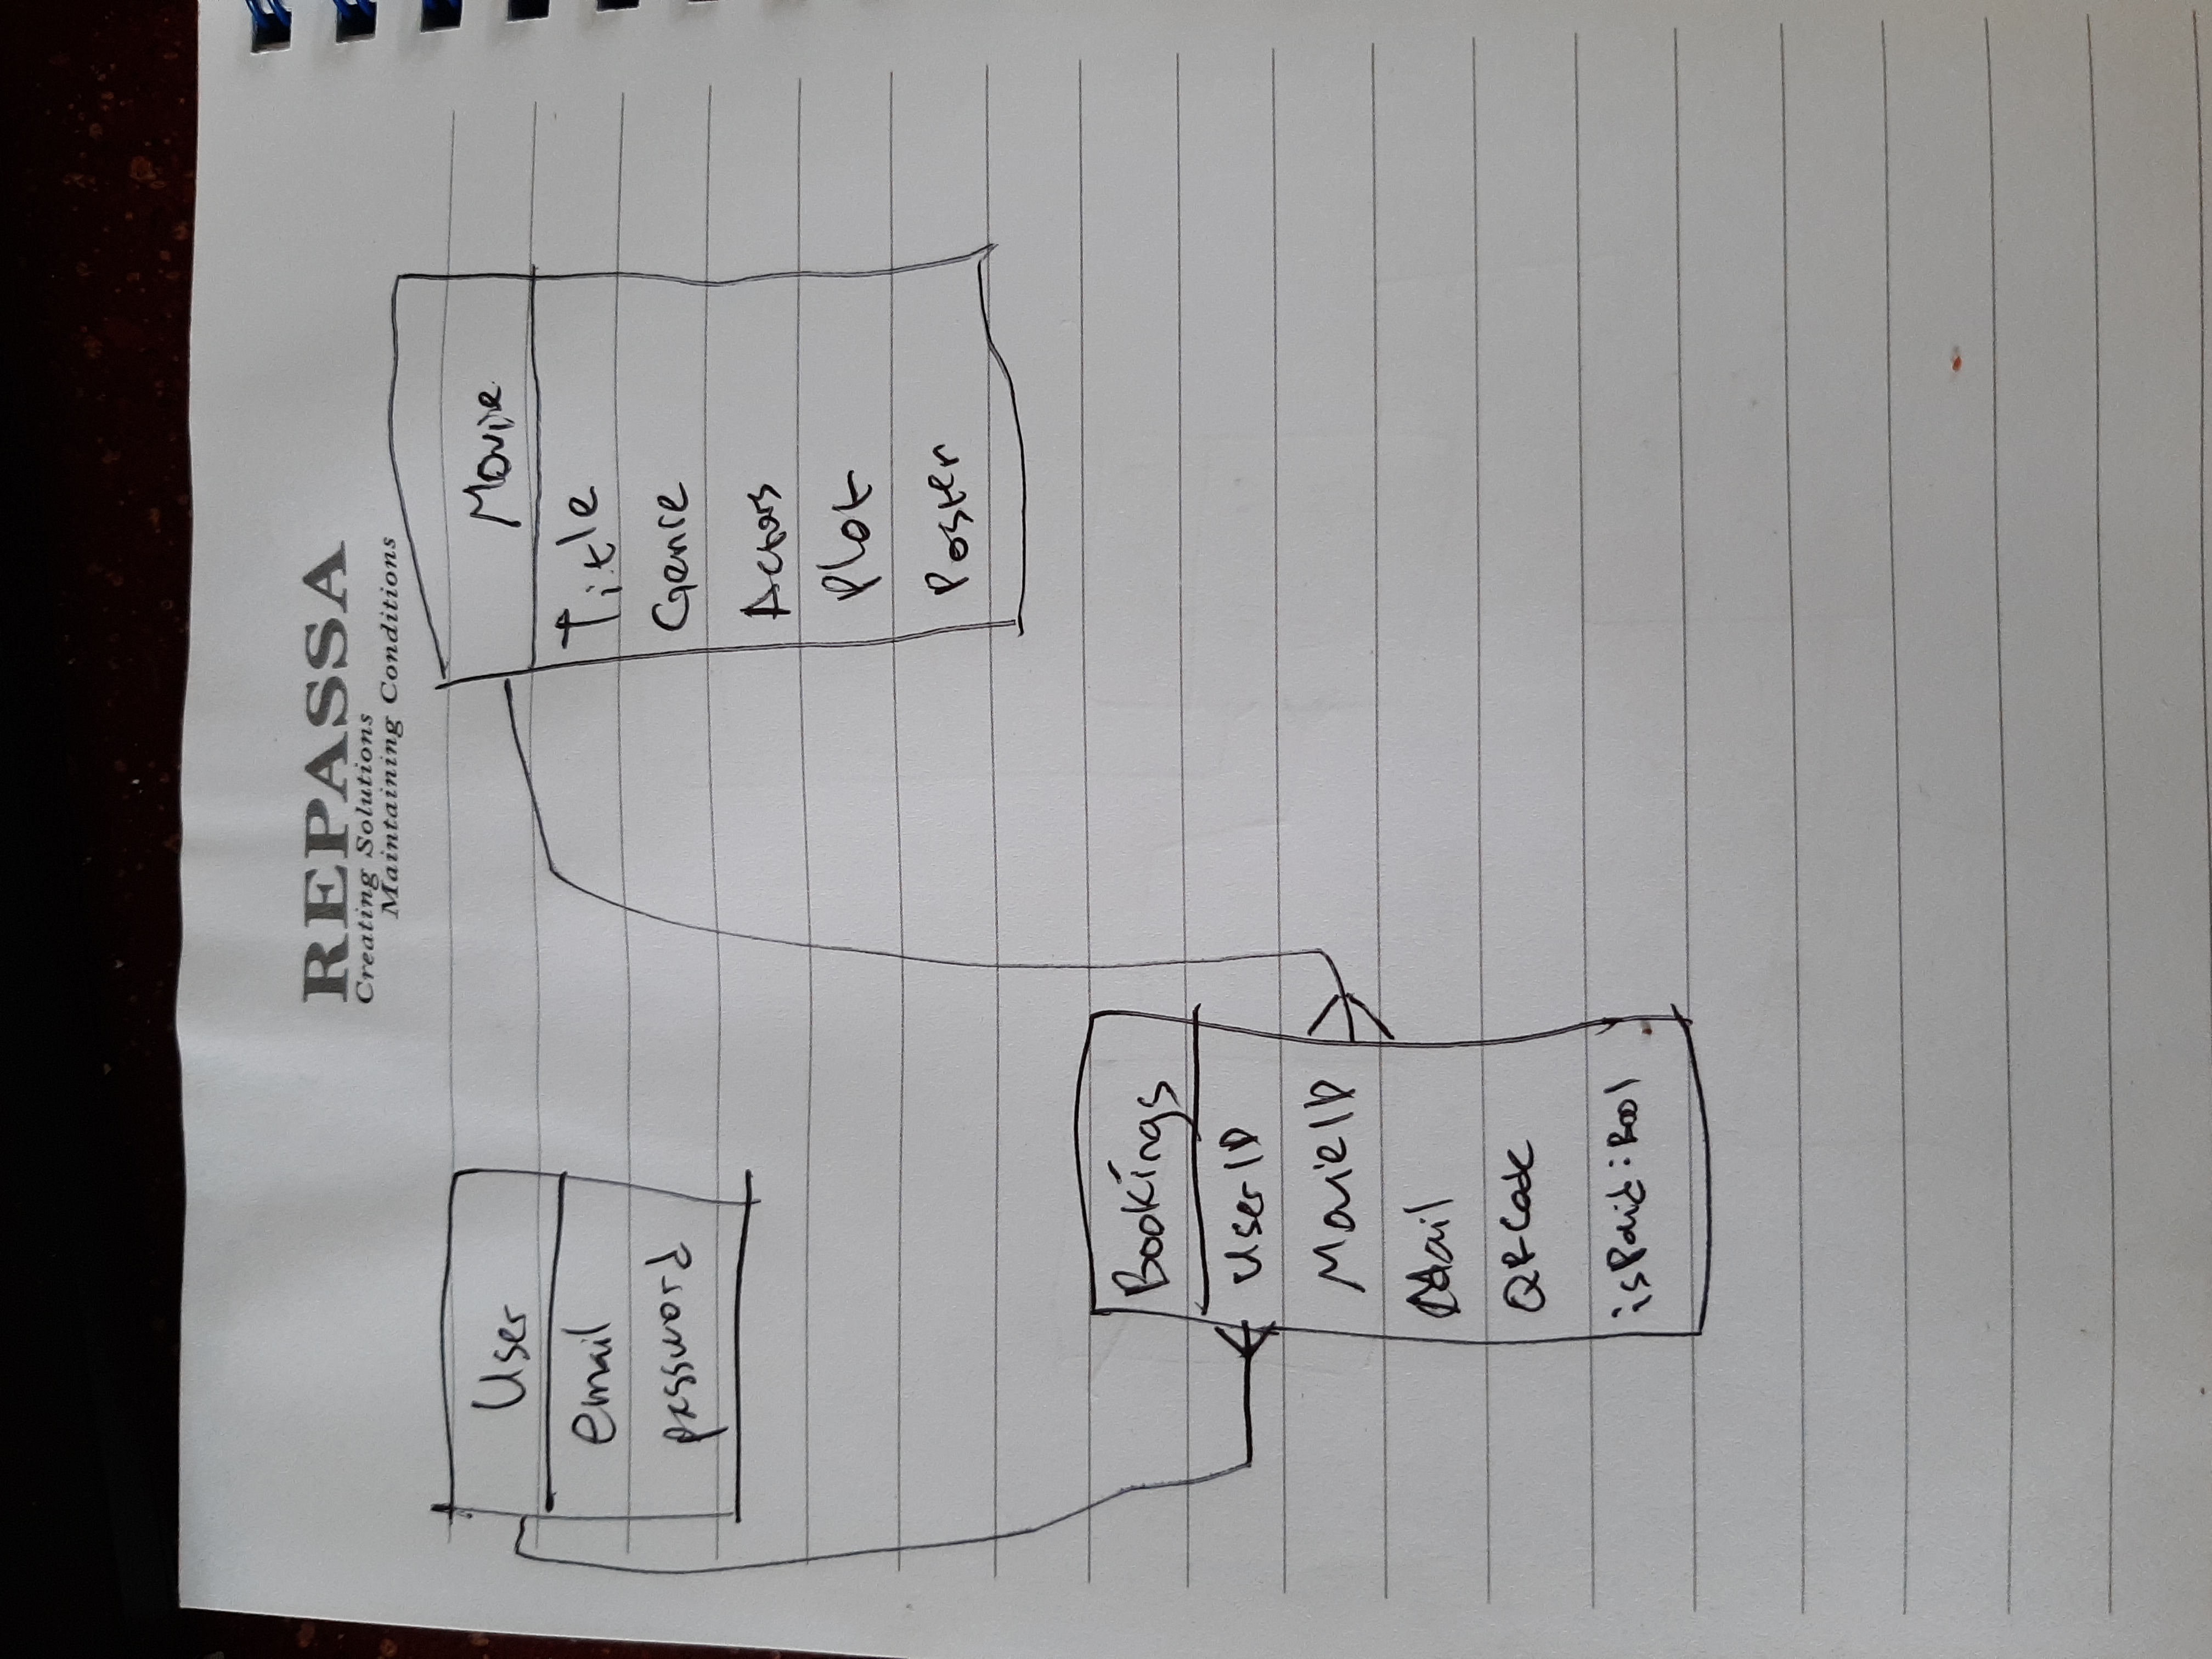 REPASSA
Creating Solutions
Maintaining Conditions
User
email
password
Movie
Title
Genre
Actors
Plot
Poster
Bookings
UserID
MovieID
Mail
QRCode
isPaid:Bool